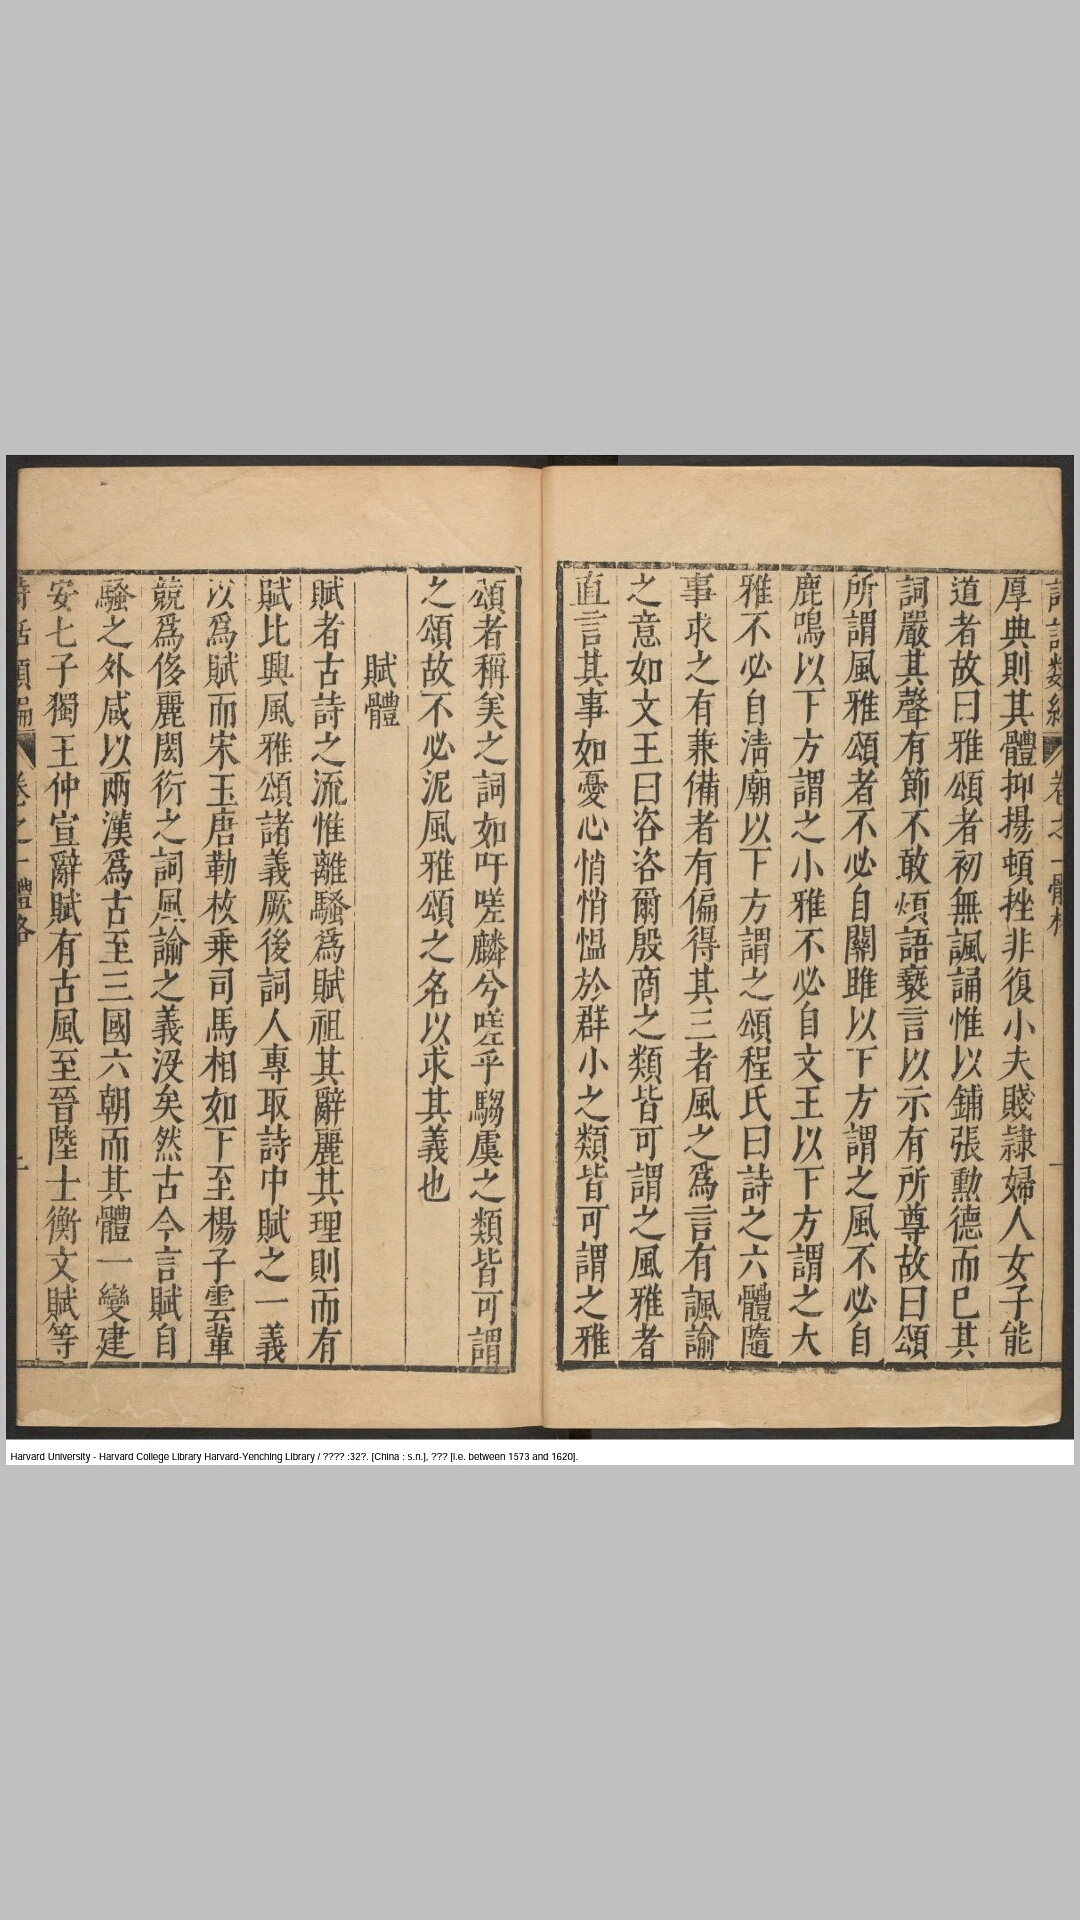 厚典則其體抑揚頓挫非復小夫賤隷婦人女子能
道者故曰雅頌者初無諷誦惟以鋪張勲德而已其
詞嚴其聲有節不敢煩語褻言以示有所尊故曰頌
所謂風雅頌者不必自關雎以下方謂之風不必自
鹿鳴以下方謂之小雅不必自文王以下方謂之大
雅不必自淸廟以下方謂之頌程氏曰詩之六體隨
事求之有兼備者有偏得其三者風之爲言有諷諭
之意如文王曰咨咨爾殷商之類皆可謂之風雅者
直言其事如憂心悄悄愠於群小之類皆可謂之雅
頌者稱美之詞如吁嗟麟兮嗟乎騶虞之類皆可謂
之頌故不必泥風雅頌之名以求其義也
賦體
賦者古詩之流惟離騷爲賦祖其辭麗其理則而有
賦比興風雅頌諸義厥後詞人專取詩中賦之一義
以爲賦而宋玉唐勒枚乗司馬相如下至楊子雲輩
競爲侈麗閎衍之詞風諭之義沒矣然古今言賦自
騷之外咸以兩漢爲古至三國六朝而其體一變建
安七子獨王仲宣辭賦有古風至晉陸士衡文賦等
Harvard University - Harvard College Library Harvard-Yenching Library / ???? :32?. [China : s.n.], ??? [i.e. between 1573 and 1620].